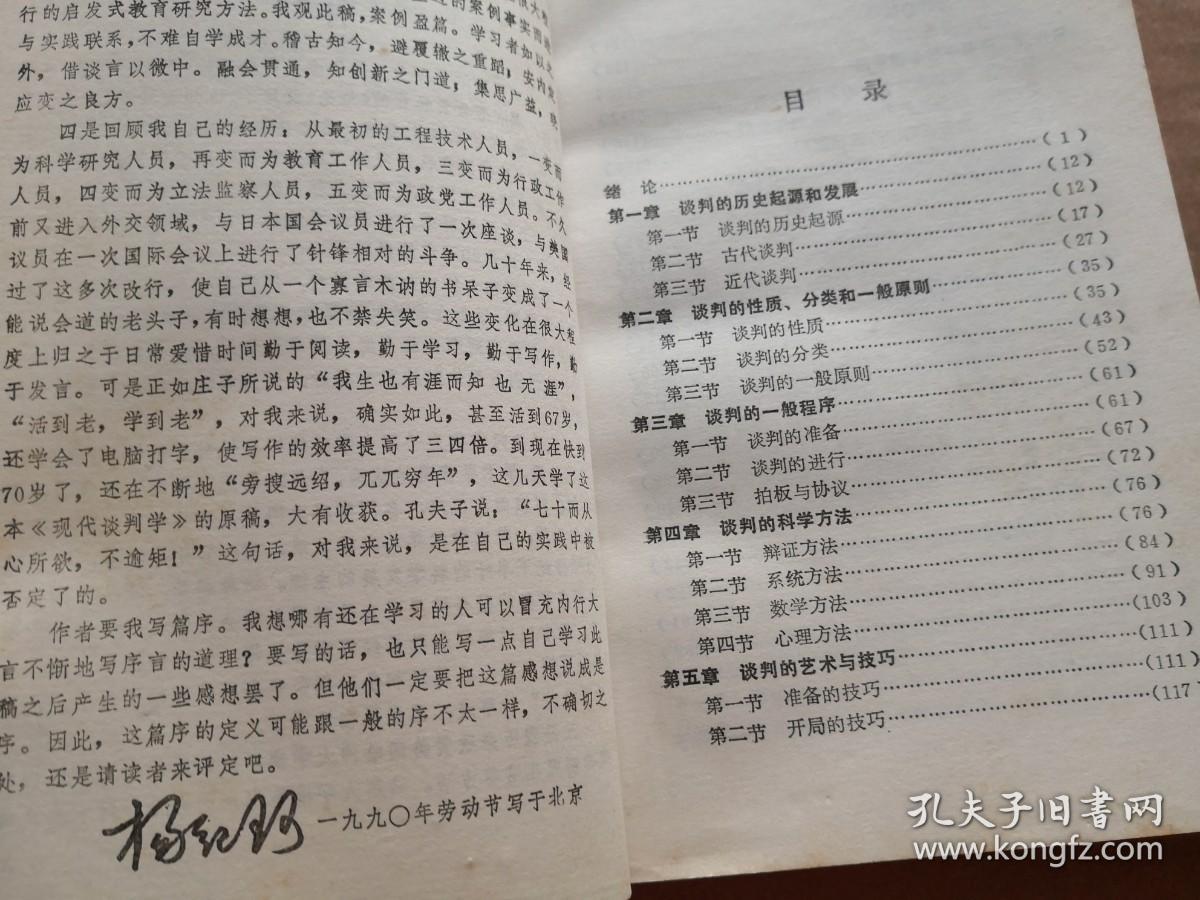 行的启发式教育研究方法。我观此稿，案例盈篇。学习者如以
与实践联系，不难自学成才。稽古知今，避覆辙之重蹈，安内
外，借谈言以微中。融会贯通，知创新之门道，集思广益，
应变之良方。
四是回顾我自己的经历：从最初的工程技术人员，一变而
为科学研究人员，再变而为教育工作人员，三变而为行政工作
人员，四变而为立法监察人员，五变而为政党工作人员。不久
前又进入外交领域，与日本国会议员进行了一次座谈，与美国
议员在一次国际会议上进行了针锋相对的斗争。几十年来，经
过了这多次改行，使自己从一个寡言木讷的书呆子变成了一个
能说会道的老头子，有时想想，也不禁失笑。这些变化在很大程
度上归之于日常爱惜时间勤于阅读，勤于学习，勤于写作，勤
于发言。可是正如庄子所说的“我生也有涯而知也无涯”，
“活到老，学到老”，对我来说，确实如此，甚至活到67岁，
还学会了电脑打字，使写作的效率提高了三四倍。到现在快到
70岁了，还在不断地“旁搜远绍，兀兀穷年”，这几天学了这
本《现代谈判学》的原稿，大有收获。孔夫子说：“七十而从
心所欲，不逾矩！”这句话，对我来说，是在自己的实践中被
否定了的。
作者要我写篇序。我想哪有还在学习的人可以冒充内行大
言不惭地写序言的道理？要写的话，也只能写一点自己学习此
稿之后产生的一些感想罢了。但他们一定要把这篇感想说成是
序。因此，这篇序的定义可能跟一般的序不太一样，不确切之
处，还是请读者来评定吧。
一九九〇年劳动节写于北京
目 录
绪 论……(1)
第一章 谈判的历史起源和发展……(12)
第一节 谈判的历史起源……(12)
第二节 古代谈判……(17)
第三节 近代谈判……(27)
第二章 谈判的性质、分类和一般原则……(35)
第一节 谈判的性质……(35)
第二节 谈判的分类……(43)
第三节 谈判的一般原则……(52)
第三章 谈判的一般程序……(61)
第一节 谈判的准备……(61)
第二节 谈判的进行……(67)
第三节 拍板与协议……(72)
第四章 谈判的科学方法……(76)
第一节 辩证方法……(76)
第二节 系统方法……(84)
第三节 数学方法……(91)
第四节 心理方法……(103)
第五章 谈判的艺术与技巧……(111)
第一节 准备的技巧……(111)
第二节 开局的技巧……(117)
孔夫子旧书网
www.kongfz.com